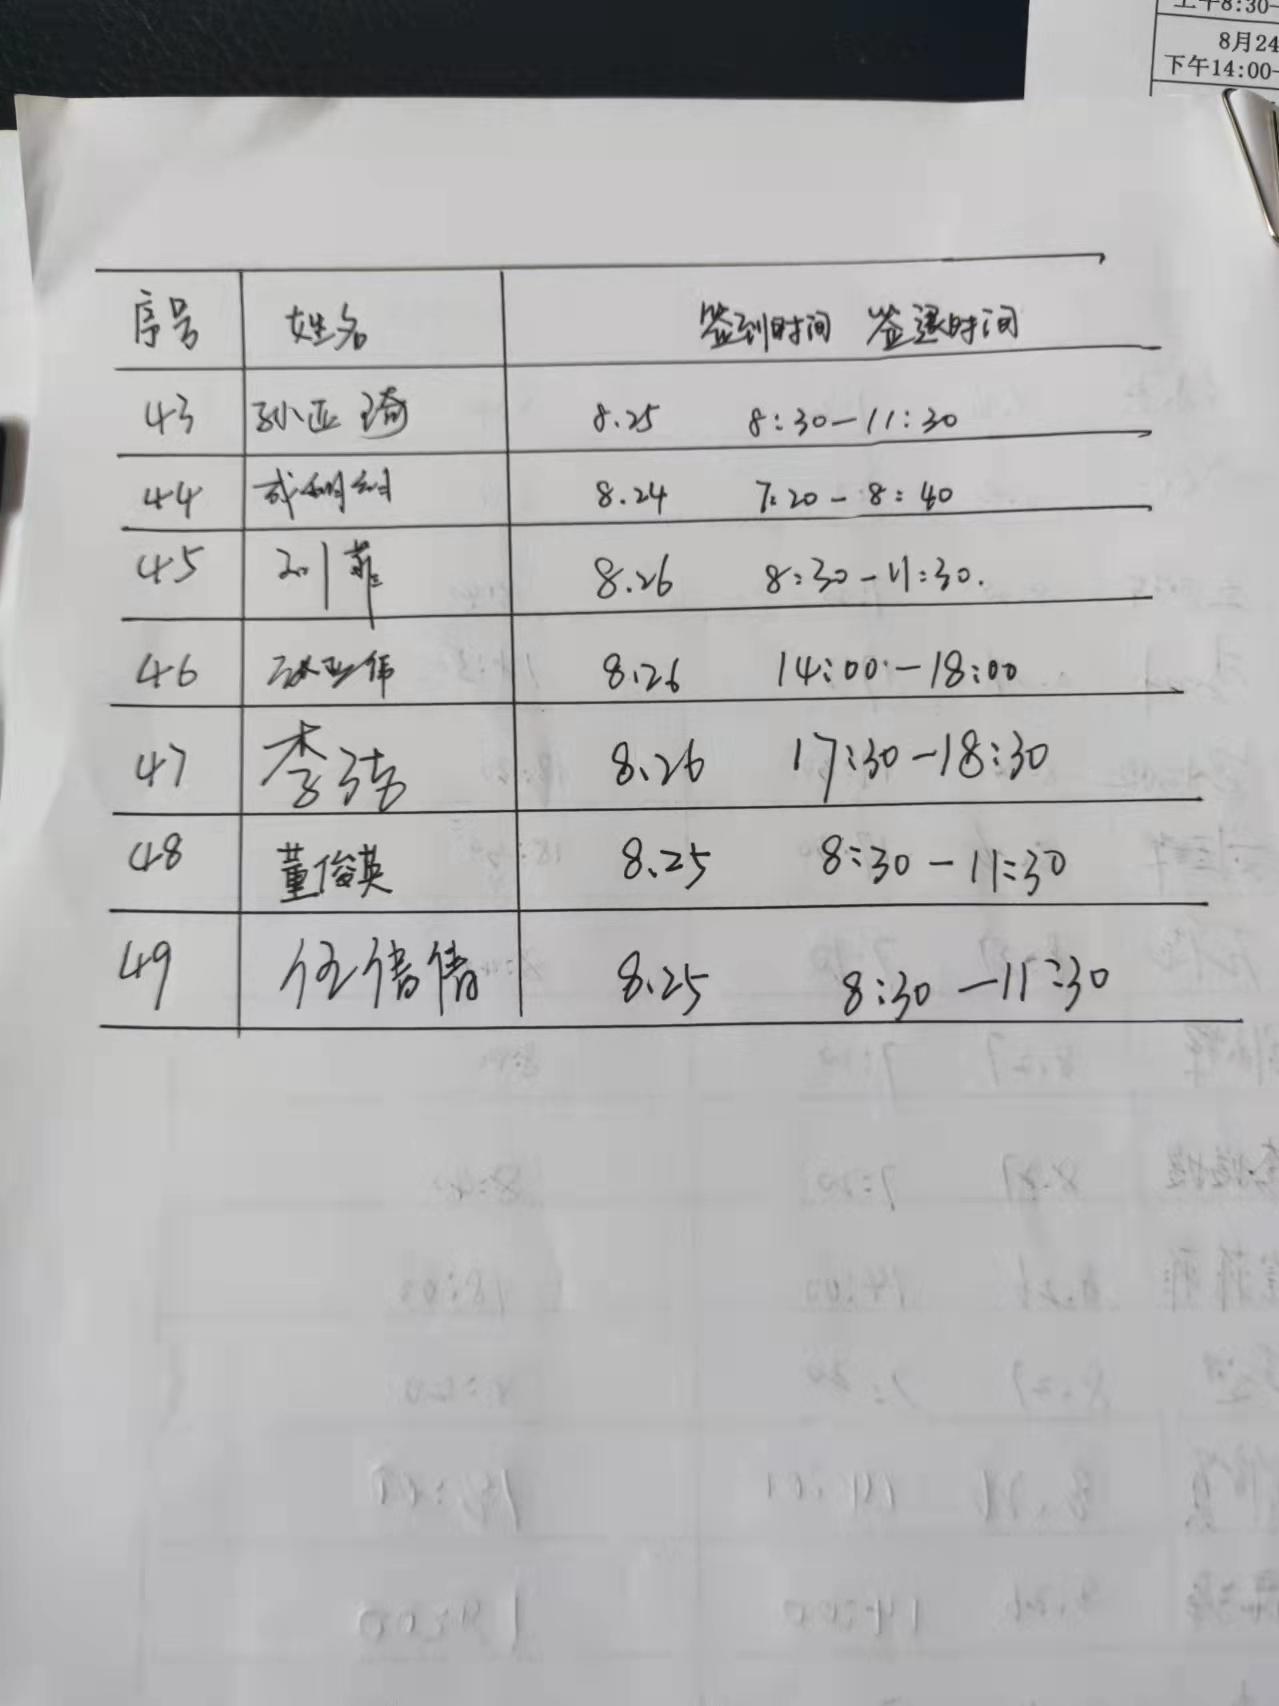 上午8:30-
8月24
下午14:00-
序号 姓名 签到时间 签退时间
43 孙亚琦 8.25 8:30-11:30
44 8.24 7:20-8:40
45 刘菲 8.26 8:30-11:30.
46 8.26 14:00-18:00
47 李 8.26 17:30-18:30
48 董俊英 8.25 8:30-11:30
49 任倩倩 8.25 8:30-11:30